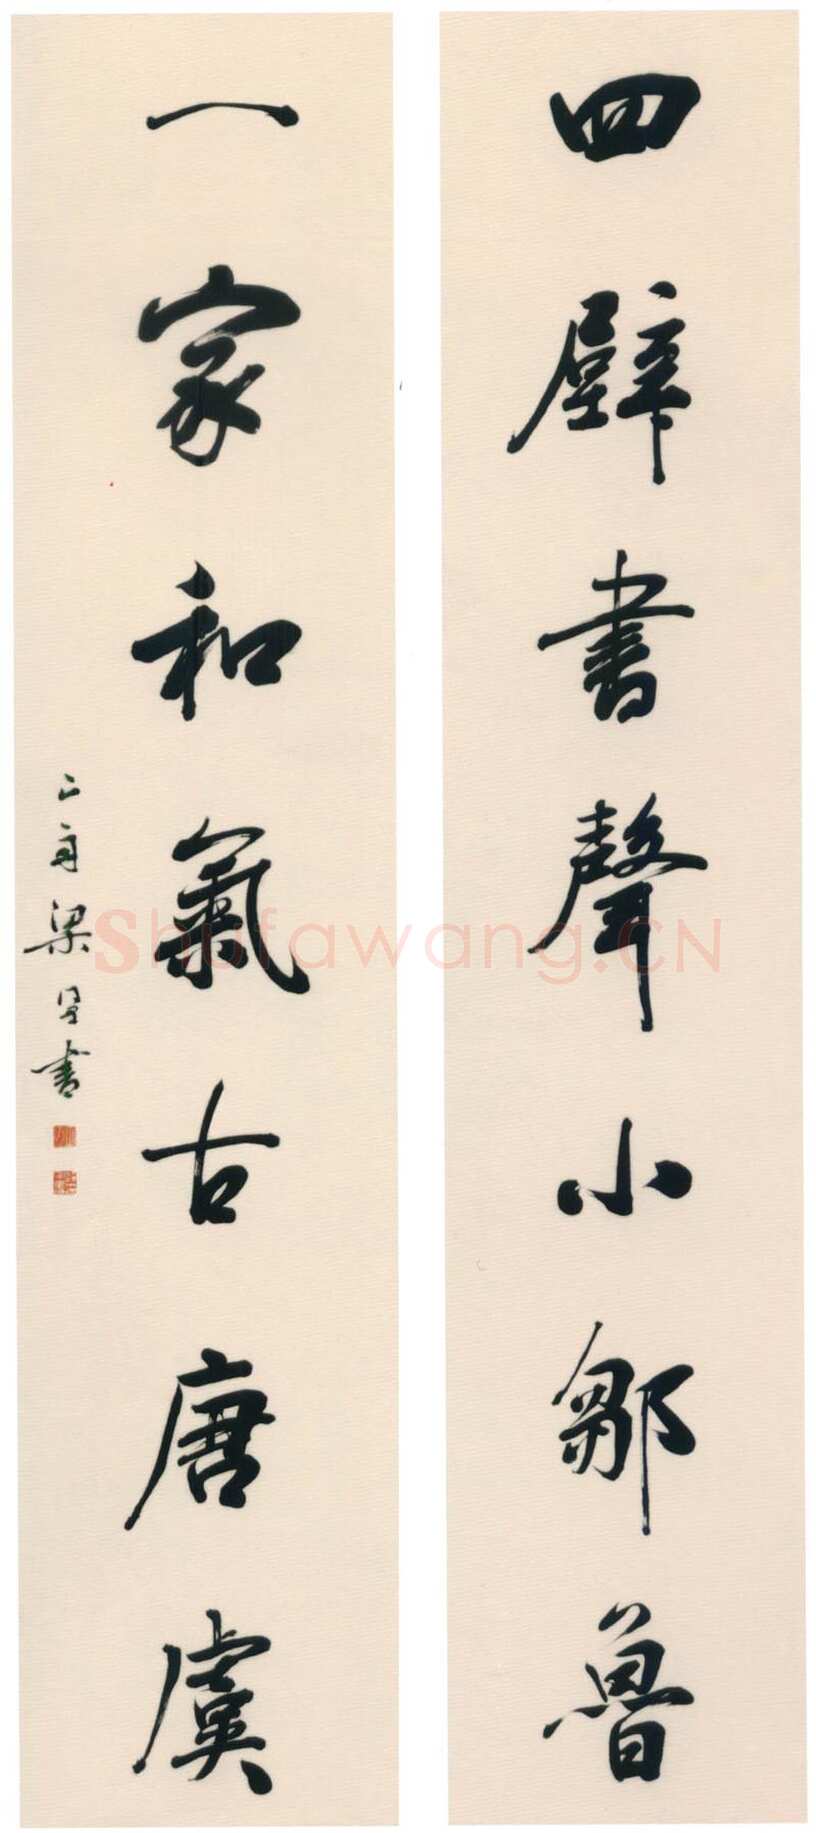 四壁書聲小鄒魯
一家和氣古唐虞
梁書
Shufawang.CN